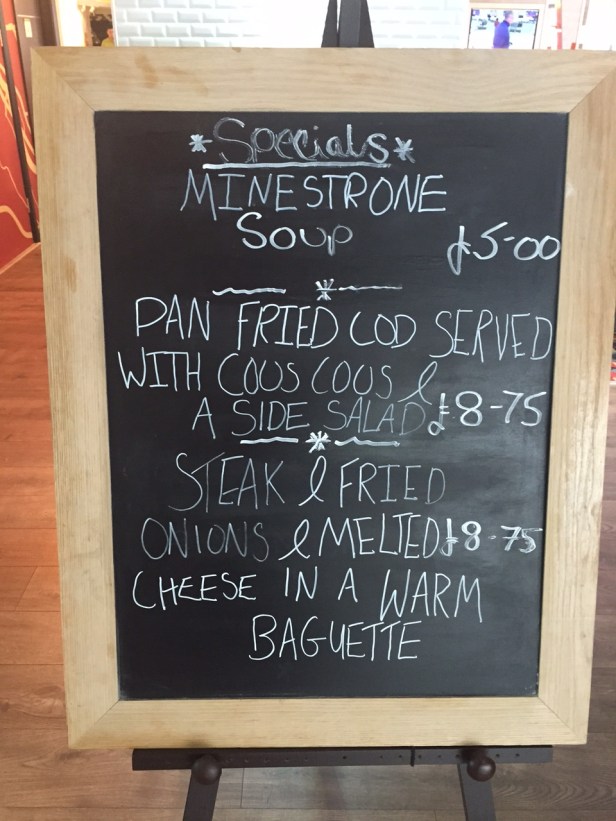 *Specials*
MINESTRONE
SOUP £5-00
PAN FRIED COD SERVED
WITH COUS COUS &
A SIDE SALAD £8-75
STEAK & FRIED
ONIONS & MELTED £8-75
CHEESE IN A WARM
BAGUETTE